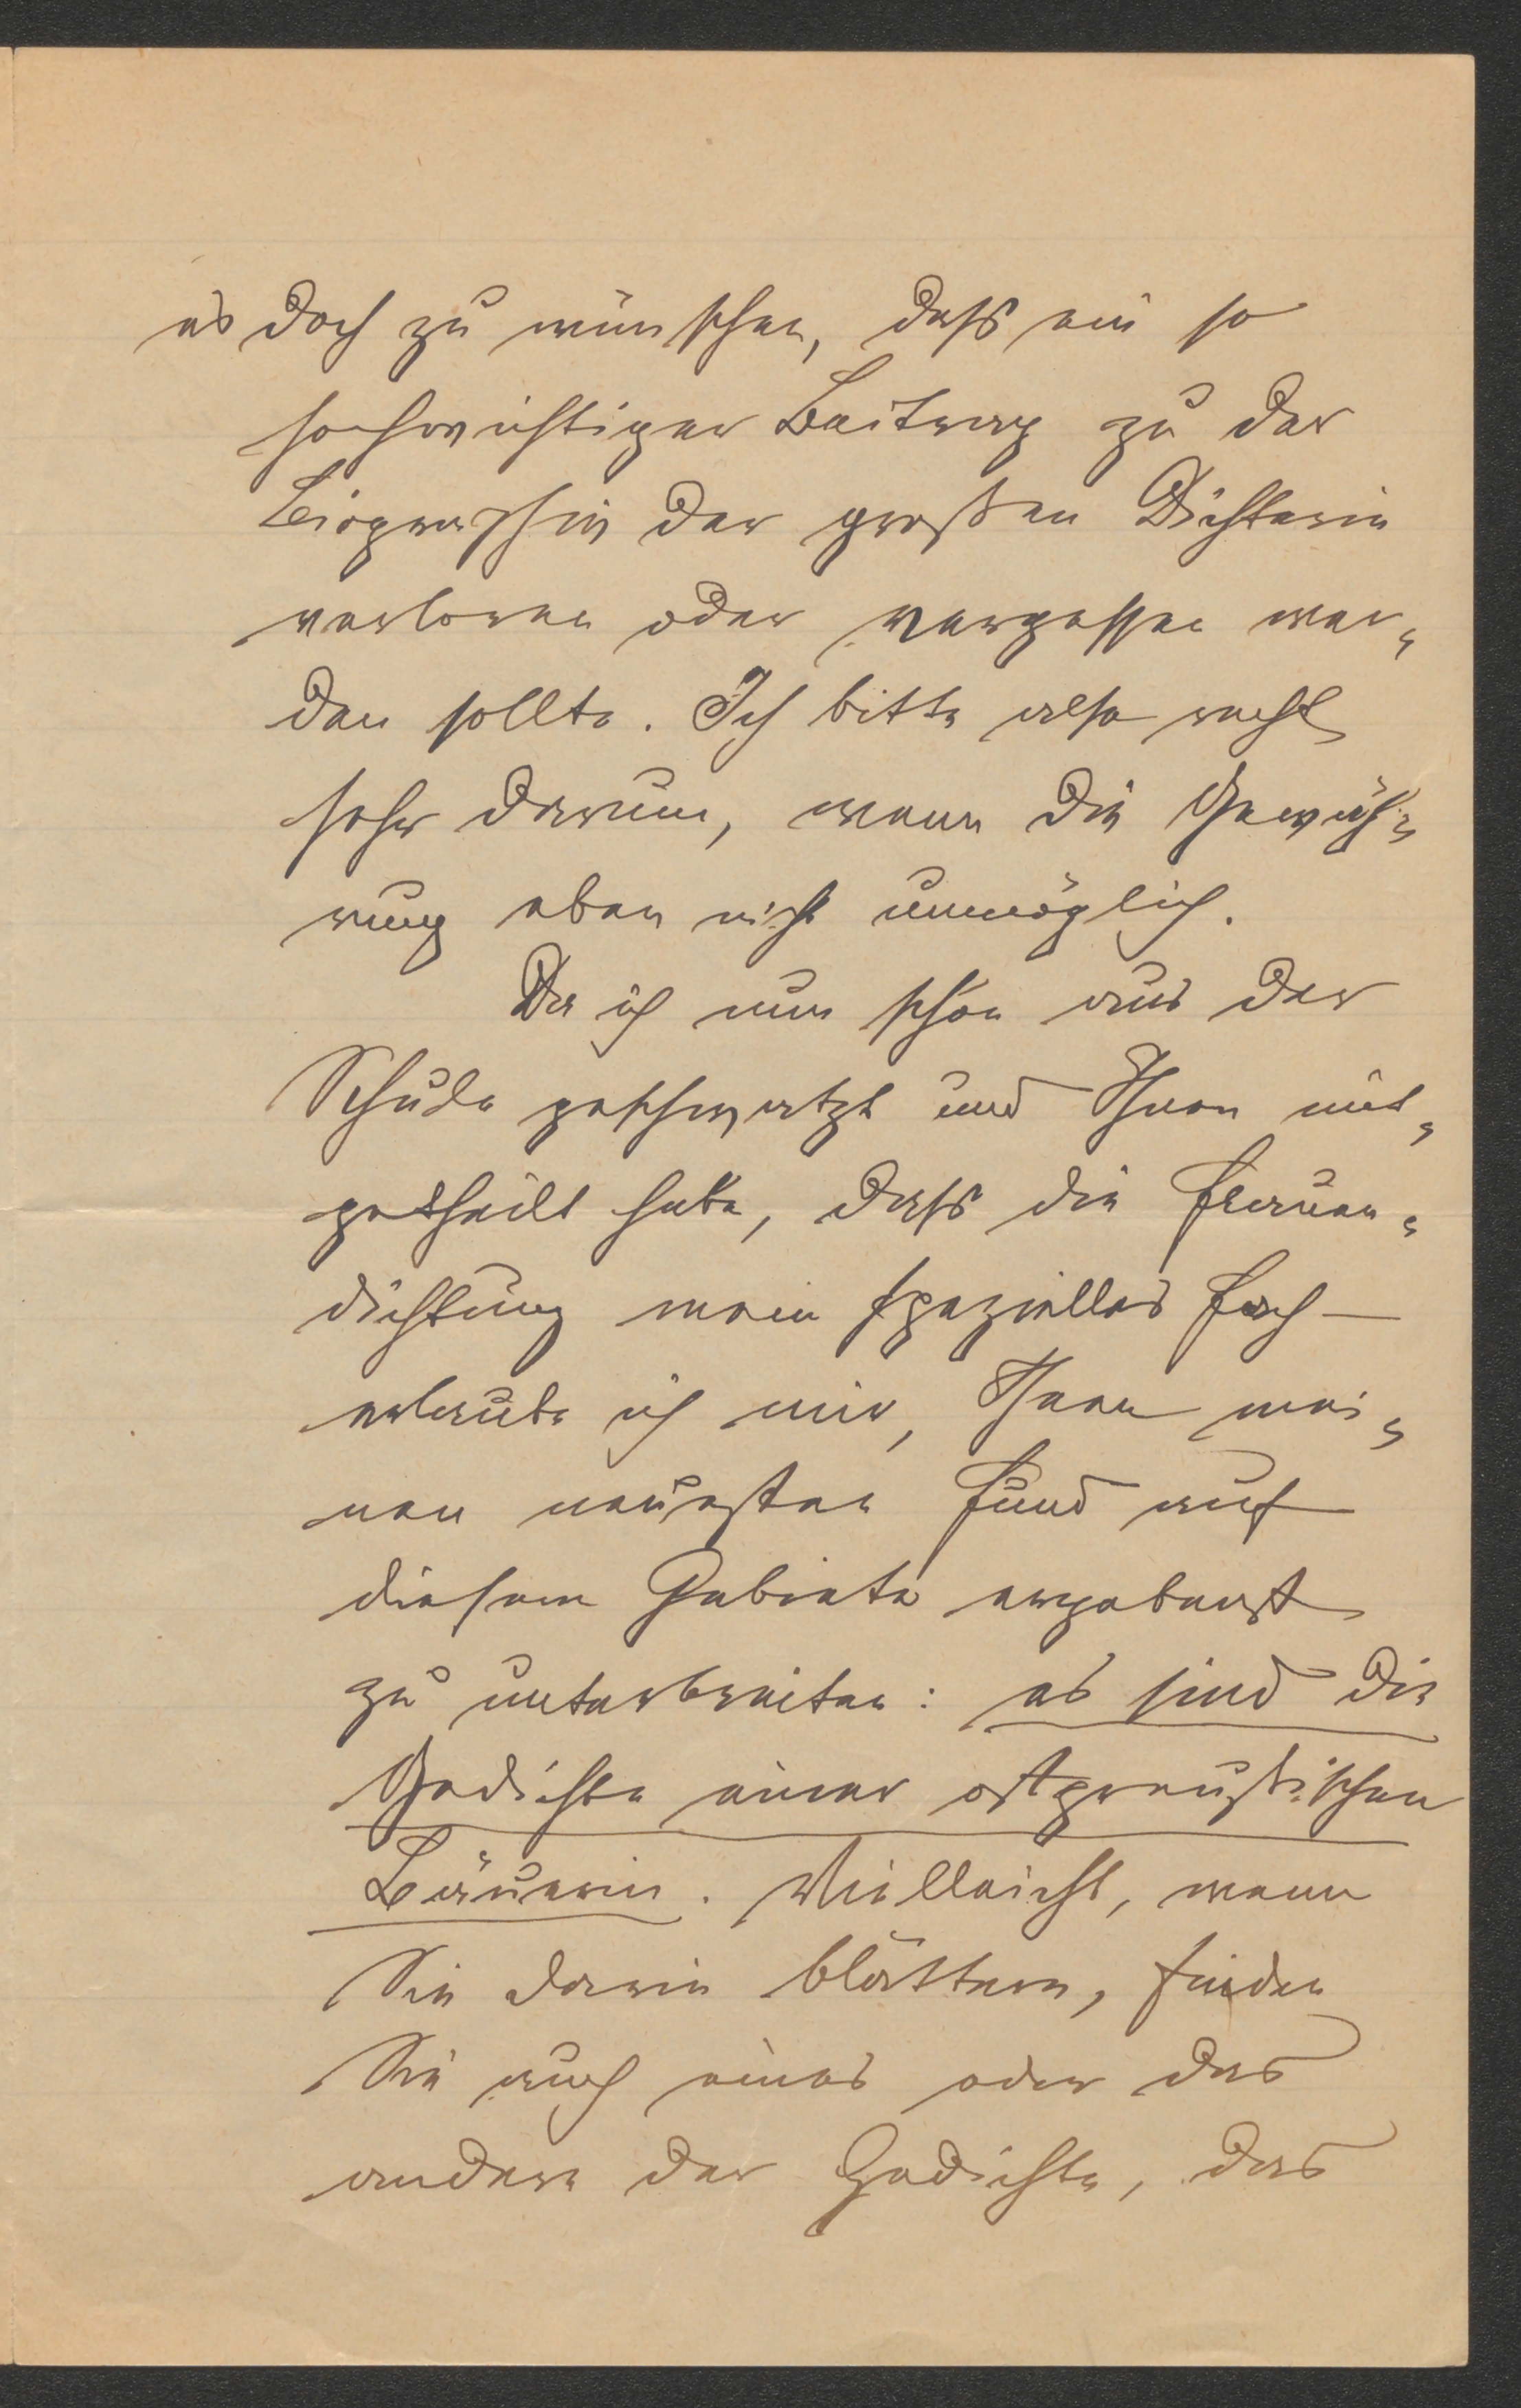 es doch zu wünschen, daß ein so
hochwichtiger Beitrag zu der
Biographie der großen Dichterin
verloren oder vergessen wer-
den sollte. Ich bitte also recht
sehr darum, wenn die Gewäh-
rung eben nicht unmöglich.
Da ich nun schon aus der
Schule geschwatzt und Ihnen mit-
getheilt habe, daß die Frauen-
dichtung mein spezielles Fach —
erlaube ich mir, Ihnen mei-
nen neuesten Fund auf
diesem Gebiete ergebenst
zu unterbreiten: es sind die
Gedichte einer ostpreußischen
Bäuerin. Vielleicht, wenn
Sie darin blättern, finden
Sie auch eines oder das
andere der Gedichte, das